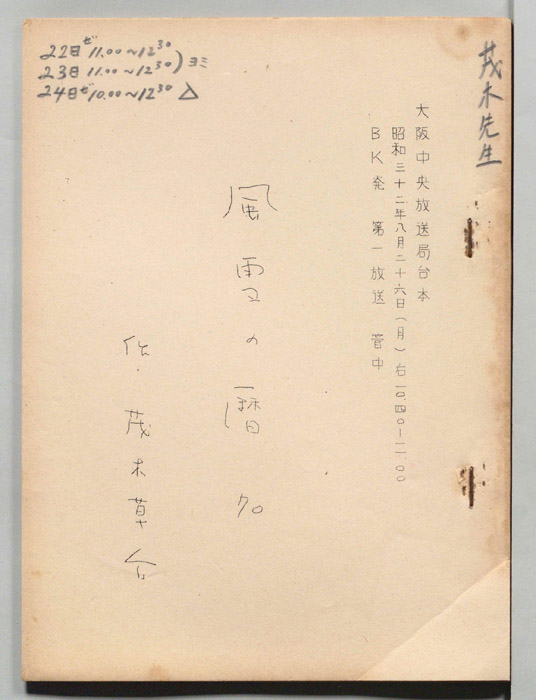 茂木先生
大阪中央放送局台本
昭和三十二年八月二十六日(月)右一〇.四〇―一一.〇〇
BK発 第一放送 管中
風雪の暦
作・茂木草介
22日ゼ11.00~12 30
23日 11.00~12 30)ヨミ
24日ゼ10.00~12 30 △